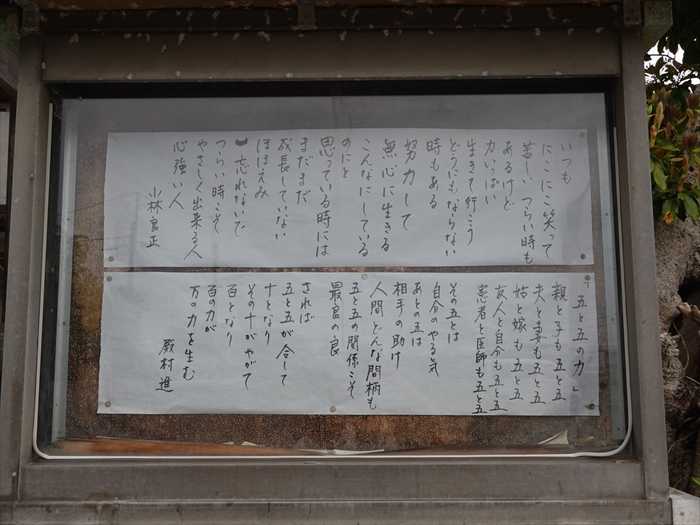 いつも
にこにこ笑って
苦しい つらい時も
あるけど
力いっぱい
生きて行こう
どうにもならない
時もある
努力して
無心に生きる
こんなにしている
のにと
思っている時には
まだまだ
成長していない
ほほえみ
忘れないで
つらい時こそ
やさしく出来る人
心強い人
小林良正
「五と五の力」
親と子も五と五
夫と妻も五と五
姑と嫁も五と五
友人と自分も五と五
患者と医師も五と五
その五とは
自分のやる気
あとの五は
相手の助け
人間どんな間柄も
五と五の関係こそ
最高の良
されば
五と五が合して
十となり
その十がやがて
百となり
百の力が
万の力を生む
殿村進